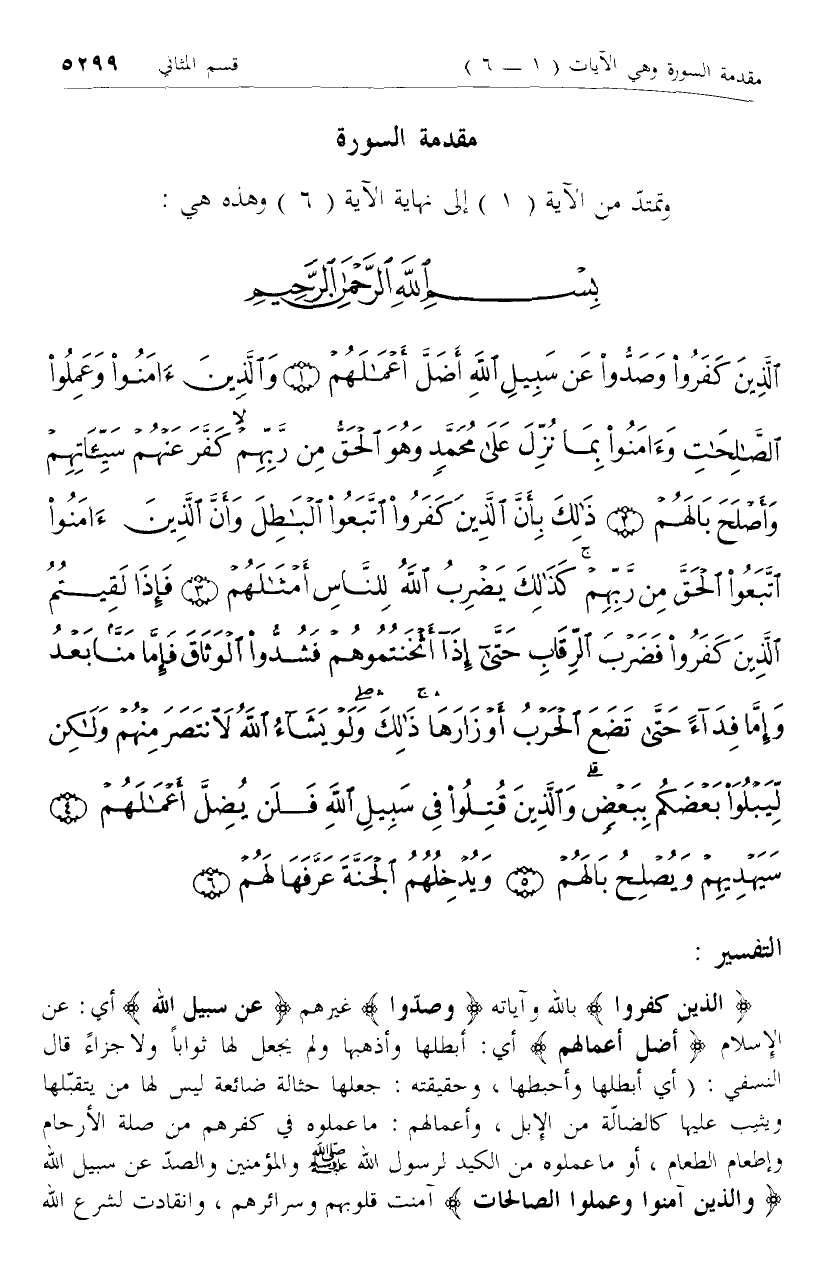 مقدمة السورة وهي الآيات ( ١ ــ ٦ ) قسم المثاني ٥٢٩٩
مقدمة السورة
وتمتدّ من الآية ( ١ ) إلى نهاية الآية ( ٦ ) وهذه هي :
بِسْمِ ٱللَّهِ ٱلرَّحْمَٰنِ ٱلرَّحِيمِ
ٱلَّذِينَ كَفَرُواْ وَصَدُّواْ عَن سَبِيلِ ٱللَّهِ أَضَلَّ أَعْمَٰلَهُمْ ۝١ وَٱلَّذِينَ ءَامَنُواْ وَعَمِلُواْ
ٱلصَّٰلِحَٰتِ وَءَامَنُواْ بِمَا نُزِّلَ عَلَىٰ مُحَمَّدٍ وَهُوَ ٱلْحَقُّ مِن رَّبِّهِمْ ۙ كَفَّرَ عَنْهُمْ سَيِّـَٔاتِهِمْ
وَأَصْلَحَ بَالَهُمْ ۝٢ ذَٰلِكَ بِأَنَّ ٱلَّذِينَ كَفَرُواْ ٱتَّبَعُواْ ٱلْبَٰطِلَ وَأَنَّ ٱلَّذِينَ ءَامَنُواْ
ٱتَّبَعُواْ ٱلْحَقَّ مِن رَّبِّهِمْ ۚ كَذَٰلِكَ يَضْرِبُ ٱللَّهُ لِلنَّاسِ أَمْثَٰلَهُمْ ۝٣ فَإِذَا لَقِيتُمُ
ٱلَّذِينَ كَفَرُواْ فَضَرْبَ ٱلرِّقَابِ حَتَّىٰٓ إِذَآ أَثْخَنتُمُوهُمْ فَشُدُّواْ ٱلْوَثَاقَ فَإِمَّا مَنَّۢا بَعْدُ
وَإِمَّا فِدَآءً حَتَّىٰ تَضَعَ ٱلْحَرْبُ أَوْزَارَهَا ۚ ذَٰلِكَ ۖ وَلَوْ يَشَآءُ ٱللَّهُ لَٱنتَصَرَ مِنْهُمْ وَلَٰكِن
لِّيَبْلُوَاْ بَعْضَكُم بِبَعْضٍ ۗ وَٱلَّذِينَ قُتِلُواْ فِى سَبِيلِ ٱللَّهِ فَلَن يُضِلَّ أَعْمَٰلَهُمْ ۝٤
سَيَهْدِيهِمْ وَيُصْلِحُ بَالَهُمْ ۝٥ وَيُدْخِلُهُمُ ٱلْجَنَّةَ عَرَّفَهَا لَهُمْ ۝٦
التفسير :
﴿ الذين كفروا ﴾ بالله وآياته ﴿ وصدّوا ﴾ غيرهم ﴿ عن سبيل الله ﴾ أي : عن
الإسلام ﴿ أضل أعمالهم ﴾ أي : أبطلها وأذهبها ولم يجعل لها ثواباً ولا جزاءً قال
النسفي : ( أي أبطلها وأحبطها ، وحقيقته : جعلها حثالة ضائعة ليس لها من يتقبّلها
ويثيب عليها كالضالّة من الإبل ، وأعمالهم : ما عملوه في كفرهم من صلة الأرحام
وإطعام الطعام ، أو ما عملوه من الكيد لرسول الله ﷺ والمؤمنين والصدّ عن سبيل الله
﴿ والذين آمنوا وعملوا الصالحات ﴾ آمنت قلوبهم وسرائرهم ، وانقادت لشرع الله